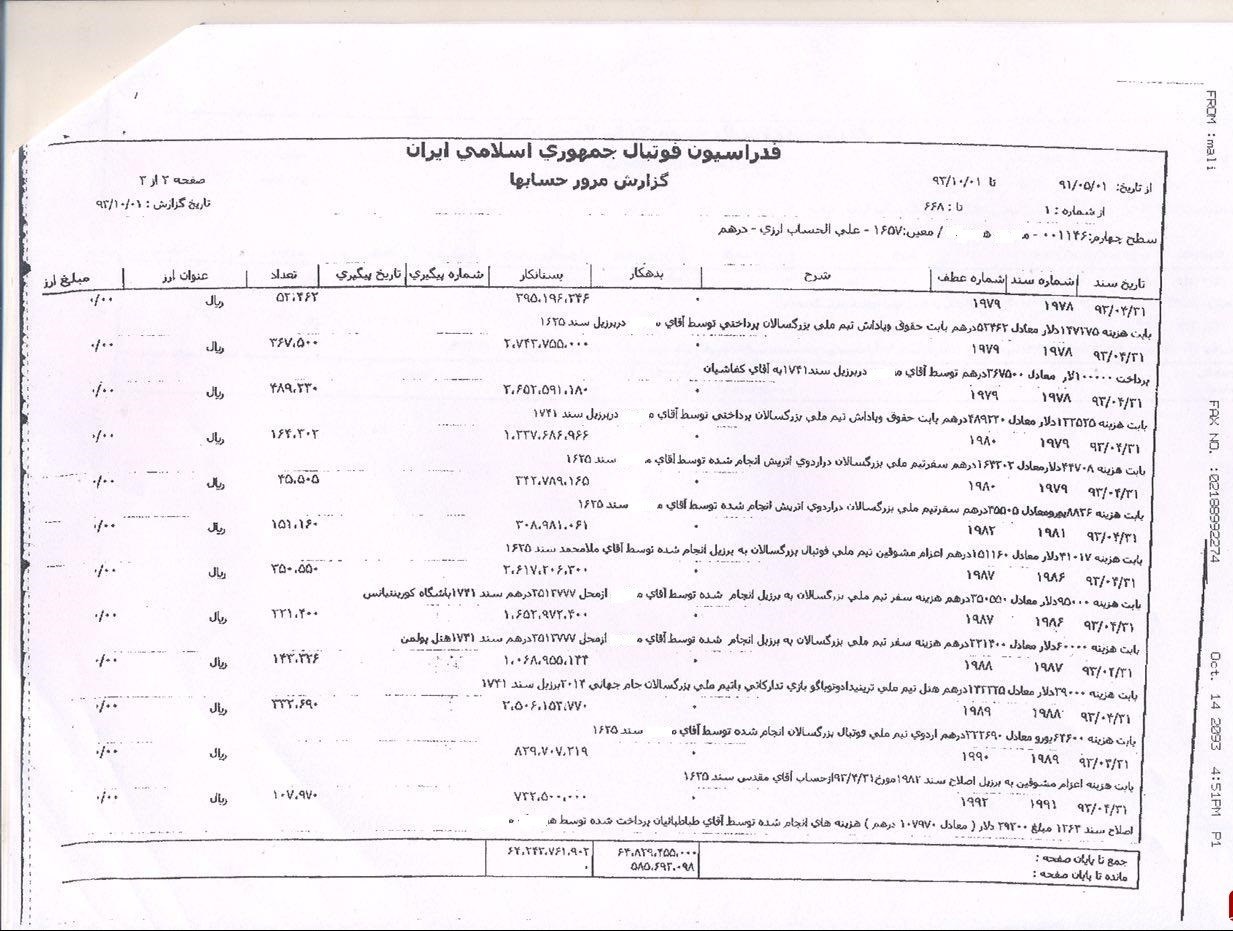 فدراسيون فوتبال جمهوري اسلامي ايران
گزارش مرور حسابها
از تاريخ: ۹۱/۰۵/۰۱ تا ۹۳/۱۰/۰۱
صفحه ۲ از ۳
از شماره : ۱ تا : ۶۶۸
تاريخ گزارش : ۹۳/۱۰/۰۱
سطح چهارم:۰۰۱۱۴۶ - م ه / معين:۱۶۵۷ - علي الحساب ارزي - درهم
تاريخ سند شماره سند شماره عطف شرح بدهكار بستانكار شماره پيگيري تاريخ پيگيري تعداد عنوان ارز مبلغ ارز
۹۳/۰۴/۳۱ ۱۹۷۸ ۱۹۷۹ ۰ ۳۹۵،۱۹۶،۲۴۶ ۵۲،۴۶۲ ريال ۰/۰۰
بابت هزينه دلار معادل ۵۲۴۶۲درهم بابت حقوق وپاداش تيم ملي بزرگسالان پرداختي توسط آقاي م دربرزيل سند ۱۶۲۵
۹۳/۰۴/۳۱ ۱۹۷۸ ۱۹۷۹ ۰ ۲،۷۴۳،۷۵۵،۰۰۰ ۳۶۷،۵۰۰ ريال ۰/۰۰
پرداخت ۱۰۰۰۰۰لار معادل ۳۶۷۵۰۰درهم توسط آقاي م دربرزيل سند۱۷۴۱به آقاي كفاشيان
۹۳/۰۴/۳۱ ۱۹۷۸ ۱۹۷۹ ۰ ۳،۶۵۲،۵۹۱،۱۸۰ ۴۸۹،۲۳۰ ريال ۰/۰۰
بابت هزينه دلار معادل ۴۸۹۲۳۰درهم بابت حقوق وپاداش تيم ملي بزرگسالان پرداختي توسط آقاي م دربرزيل سند ۱۷۴۱
۹۳/۰۴/۳۱ ۱۹۷۹ ۱۹۸۰ ۰ ۱،۲۳۷،۶۸۶،۹۶۶ ۱۶۴،۳۰۲ ريال ۰/۰۰
بابت هزينه ۴۴۷۰۸دلارمعادل ۱۶۴۳۰۲درهم سفرتيم ملي بزرگسالان دراردوي اتريش انجام شده توسط آقاي م سند ۱۶۲۵
۹۳/۰۴/۳۱ ۱۹۷۹ ۱۹۸۰ ۰ ۳۴۲،۷۸۹،۱۶۵ ۴۵،۵۰۵ ريال ۰/۰۰
بابت هزينه ۸۸۲۶يورومعادل ۴۵۵۰۵درهم سفرتيم ملي بزرگسالان دراردوي اتريش انجام شده توسط آقاي م سند ۱۶۲۵
۹۳/۰۴/۳۱ ۱۹۸۱ ۱۹۸۲ ۰ ۳۰۸،۹۸۱،۰۶۱ ۱۵۱،۱۶۰ ريال ۰/۰۰
بابت هزينه ۴۱۰۱۷دلار معادل ۱۵۱۱۶۰درهم اعزام مشوقين تيم ملي فوتبال بزرگسالان به برزيل انجام شده توسط آقاي ملامحمد سند ۱۶۲۵
۹۳/۰۴/۳۱ ۱۹۸۶ ۱۹۸۷ ۰ ۲،۶۱۷،۲۰۶،۳۰۰ ۳۵۰،۵۵۰ ريال ۰/۰۰
بابت هزينه ۹۵۰۰۰دلار معادل ۳۵۰۵۵۰درهم هزينه سفر تيم ملي بزرگسالان به برزيل انجام شده توسط آقاي م ازمحل ۲۵۱۳۷۷۷درهم سند ۱۷۴۱باشگاه كورينتيانس
۹۳/۰۴/۳۱ ۱۹۸۶ ۱۹۸۷ ۰ ۱،۶۵۲،۹۷۲،۴۰۰ ۲۲۱،۴۰۰ ريال ۰/۰۰
بابت هزينه ۶۰۰۰۰دلار معادل ۲۲۱۴۰۰درهم هزينه سفر تيم ملي بزرگسالان به برزيل انجام شده توسط آقاي م ازمحل ۲۵۱۳۷۷۷درهم سند ۱۷۴۱هتل پولمن
۹۳/۰۴/۳۱ ۱۹۸۷ ۱۹۸۸ ۰ ۱،۰۶۸،۹۵۵،۱۴۴ ريال ۰/۰۰
بابت هزينه ۳۹۰۰۰دلار معادل درهم هتل تيم ملي ترينيدادوتوباگو بازي تداركاتي باتيم ملي بزرگسالان جام جهاني ۲۰۱۴برزيل سند ۱۷۴۱
۹۳/۰۴/۳۱ ۱۹۸۸ ۱۹۸۹ ۰ ۲،۵۰۶،۱۵۲،۷۷۰ ۳۳۲،۶۹۰ ريال ۰/۰۰
بابت هزينه يورو معادل ۳۳۲۶۹۰درهم اردوي تيم ملي فوتبال بزرگسالان انجام شده توسط آقاي م سند ۱۶۲۵
۹۳/۰۴/۳۱ ۱۹۸۹ ۱۹۹۰ ۰ ۸۲۹،۷۰۷،۲۱۹ ريال ۰/۰۰
بابت هزينه اعزام مشوقين به برزيل اصلاح سند ۱۹۸۲مورخ۹۳/۴/۳۱ازحساب آقاي مقدس سند ۱۶۲۵
۹۳/۰۴/۳۱ ۱۹۹۱ ۱۹۹۲ ۷۳۲،۵۰۰،۰۰۰ ۱۰۷،۹۷۰ ريال ۰/۰۰
اصلاح سند ۱۲۶۳ مبلغ ۲۹۳۰۰ دلار ( معادل ۱۰۷۹۷۰ درهم ) هزينه هاي انجام شده توسط آقاي طباطبائيان پرداخت شده توسط ه م
جمع تا پايان صفحه : ۶۴،۸۲۹،۴۵۵،۰۰۰ ۶۴،۲۴۳،۷۶۱،۹۰۲
مانده تا پايان صفحه : ۵۸۵،۶۹۳،۰۹۸ ۰
FROM :mali
FAX NO. :02188992274
Oct. 14 2093 4:51PM P1